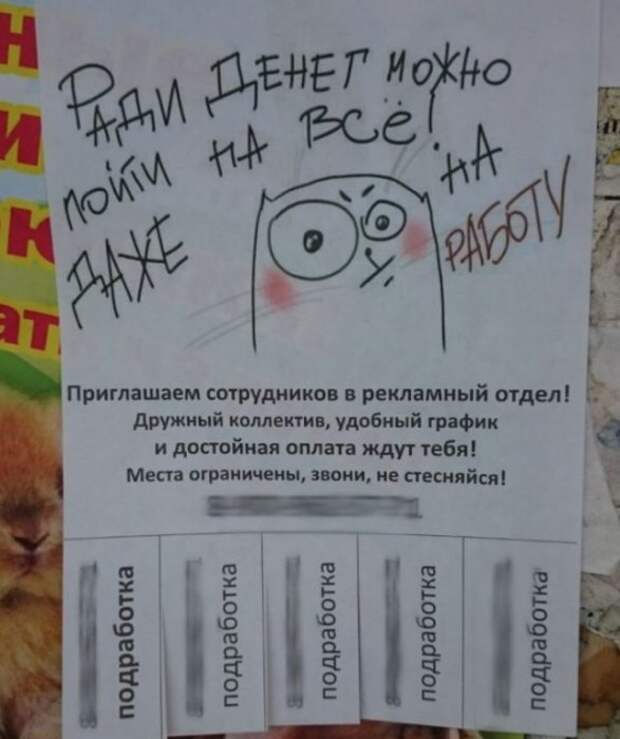 Ради Денег можно
пойти на всё!
даже на
работу
Приглашаем сотрудников в рекламный отдел!
Дружный коллектив, удобный график
и достойная оплата ждут тебя!
Места ограничены, звони, не стесняйся!
подработка
подработка
подработка
подработка
подработка